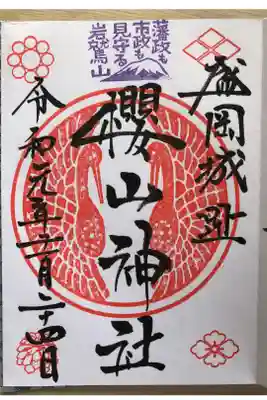 盛岡城趾
藩政も
市政も
見守る
岩鷲山
櫻山神社
令和元年十一月二十四日